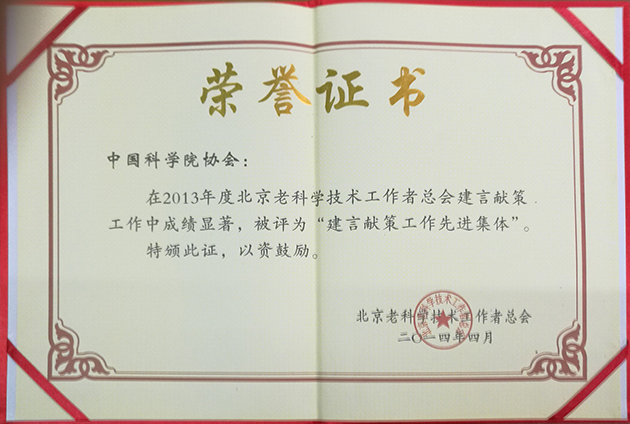 荣誉证书
中国科学院协会：
在2013年度北京老科学技术工作者总会建言献策
工作中成绩显著，被评为“建言献策工作先进集体”。
特颁此证，以资鼓励。
北京老科学技术工作者总会
二〇一四年四月